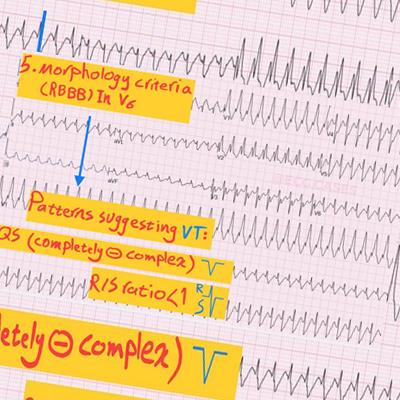 5. morphology criteria
(RBBB) In V6
aVL
aVF
Patterns suggesting VT:
QS (completely ⊖ complex)
R/S ratio<1 R
S
letely ⊖ complex)